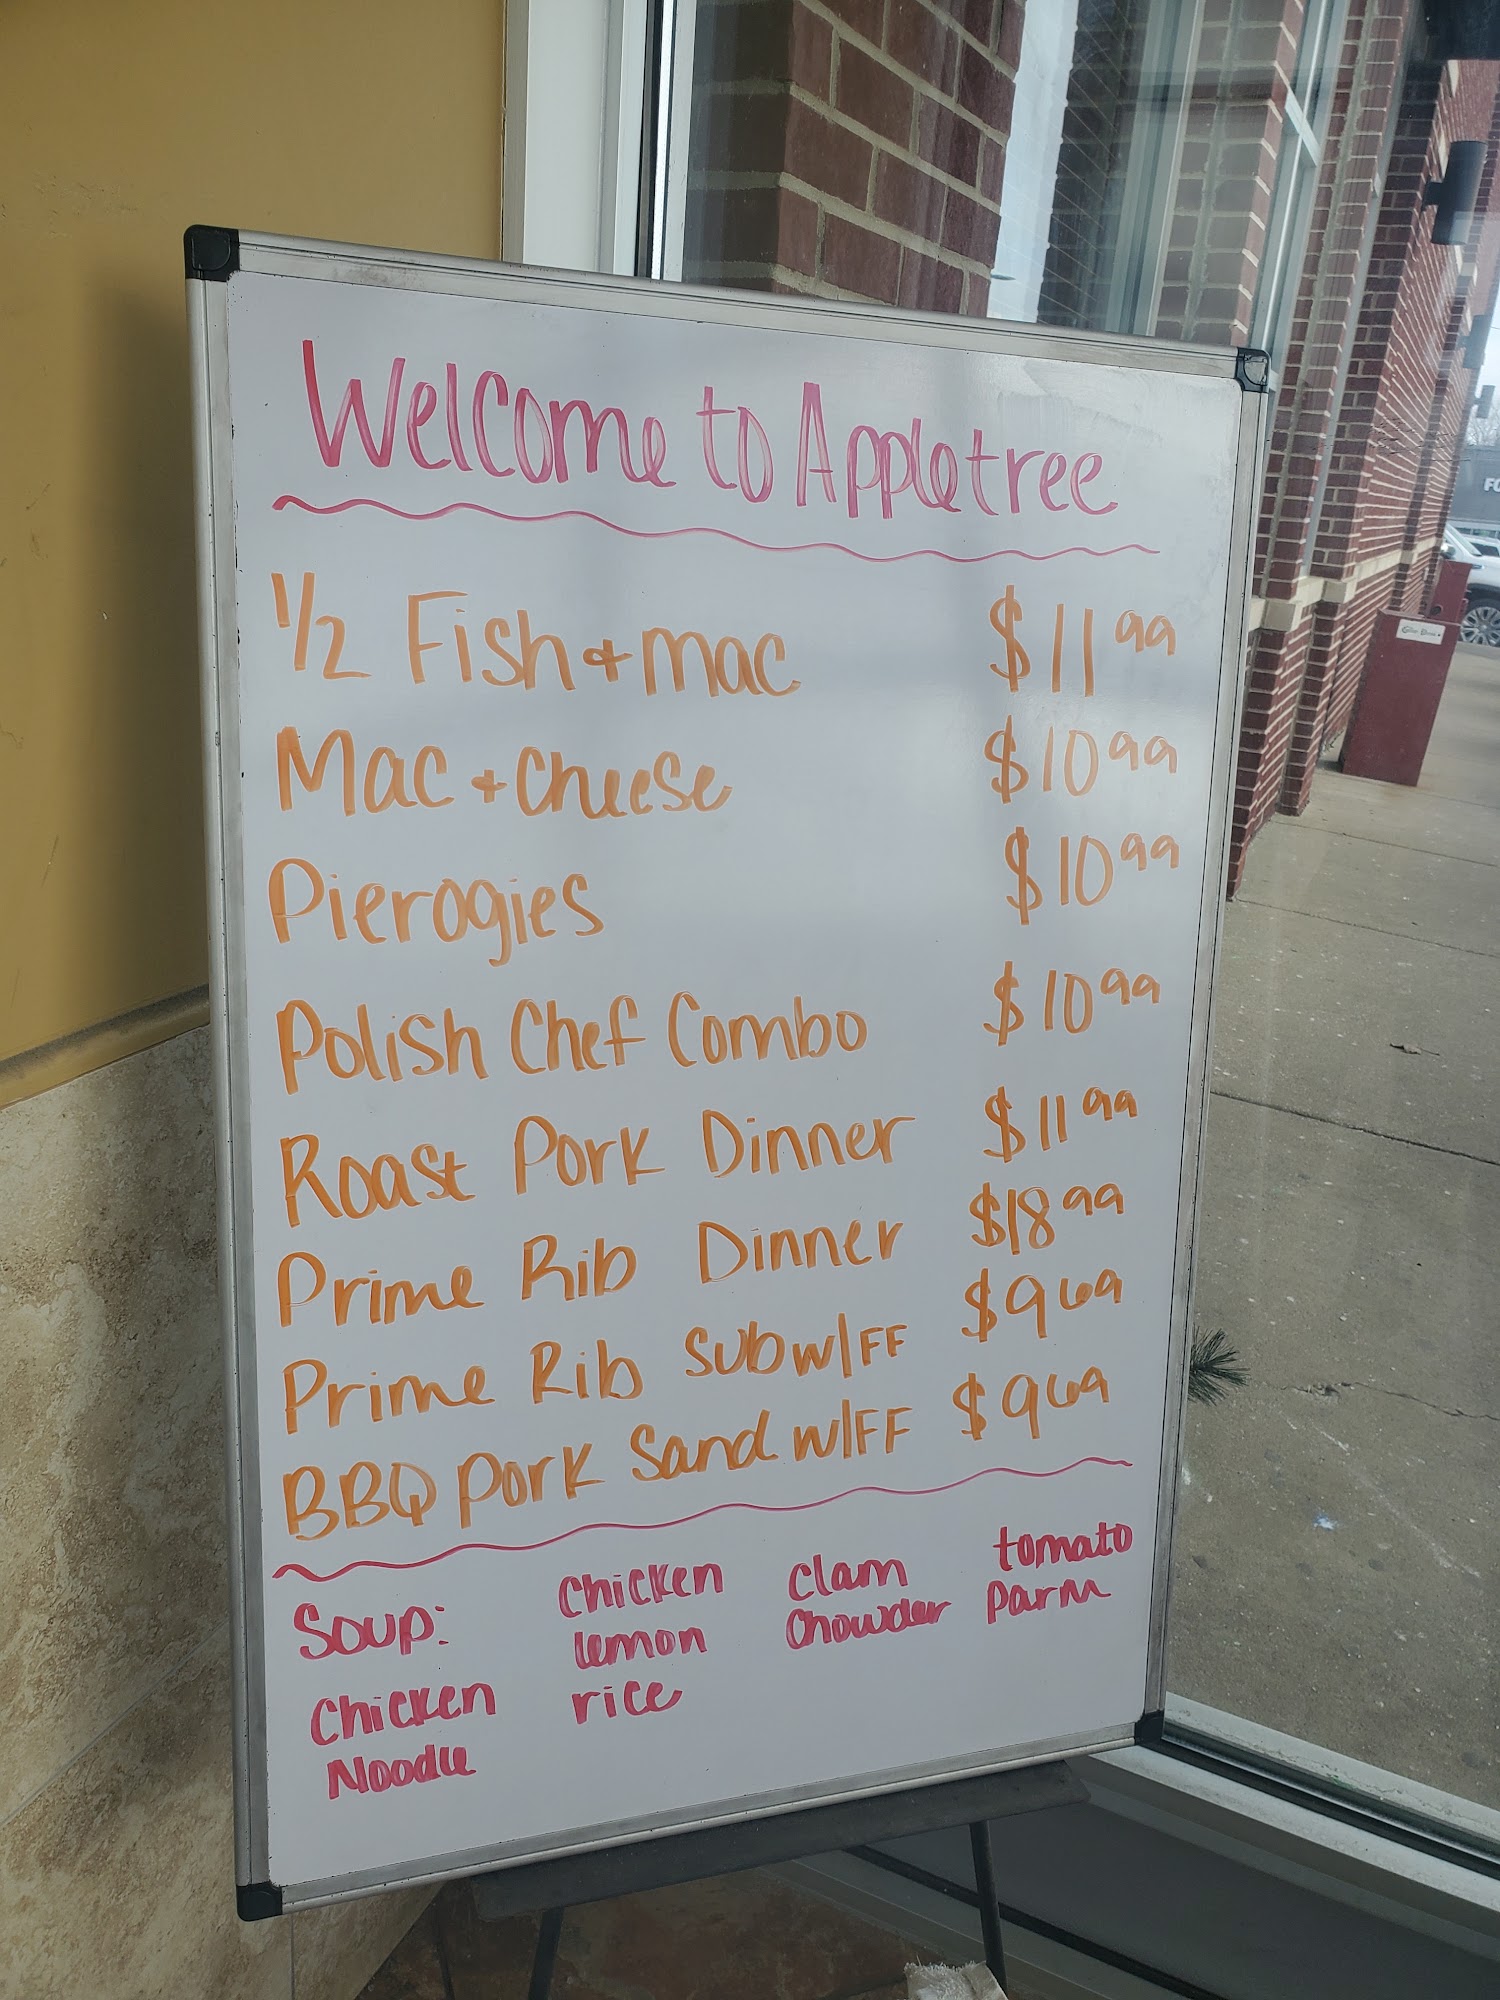 Welcome to Appletree
1/2 Fish + mac $11 99
Mac + Cheese $10 99
Pierogies $10 99
Polish Chef Combo $10 99
Roast Pork Dinner $11 99
Prime Rib Dinner $18 99
Prime Rib Sub w/FF $9 69
BBQ Pork Sand w/FF $9 69
Soup:
Chicken
Noodle
Chicken
lemon
rice
Clam
Chowder
tomato
parm